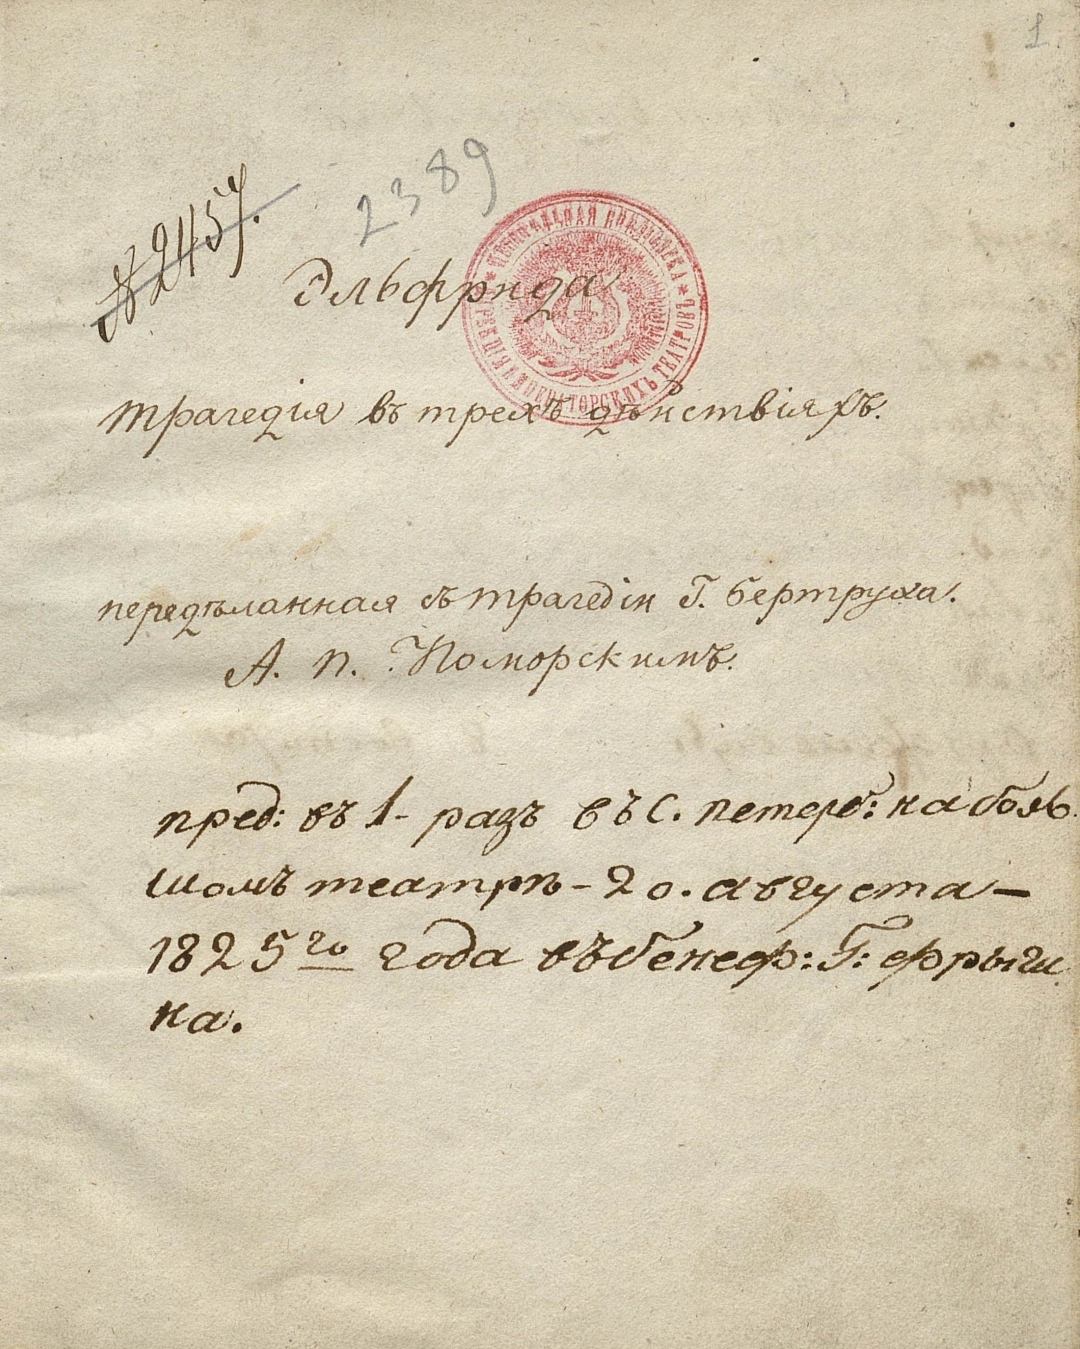 1.
№ 2457.
2389
Эльфрида
ЦЕНТРАЛЬНАЯ БИБЛІОТЕКА * ИМПЕРАТОРСКИХЪ ТЕАТРОВЪ *
трагедія въ трехъ дѣйствіяхъ.
передѣланная съ трагедіи Г. бертруха.
А. П. Поморскимъ.
пред: въ 1- разъ въ С. петерб: на боль
шомъ театрѣ - 20. августа —
1825го года въ бенеф: Г: фрыги
на.